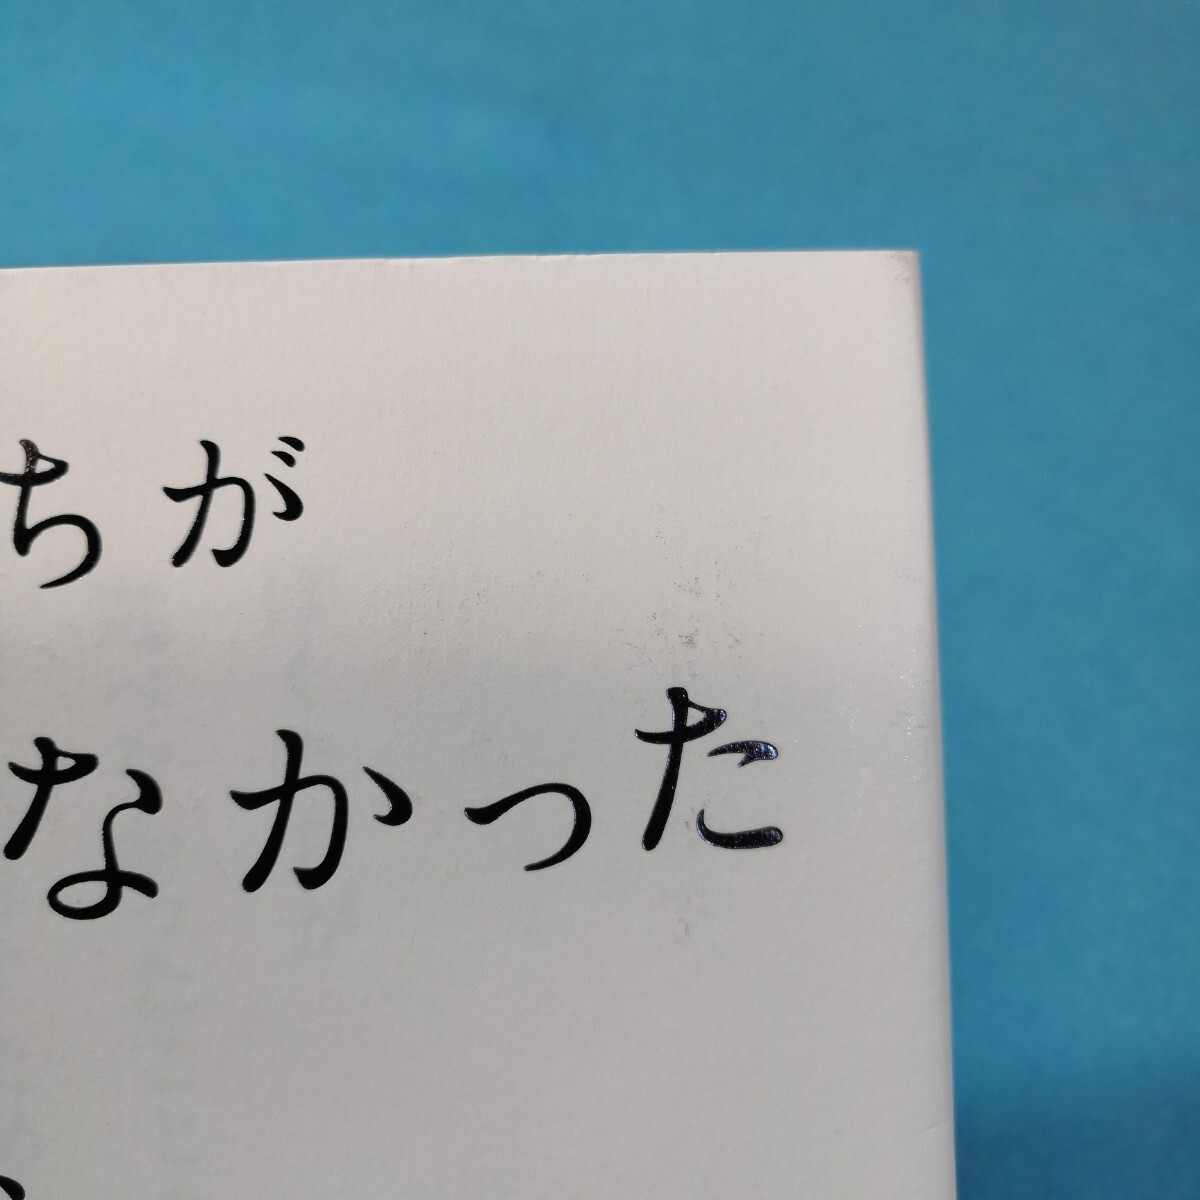 ちが
なかった